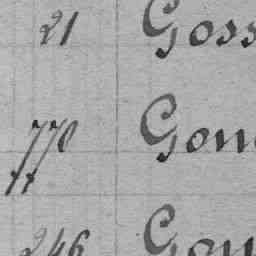 21 Goss
770 Gon
77
246 Gon